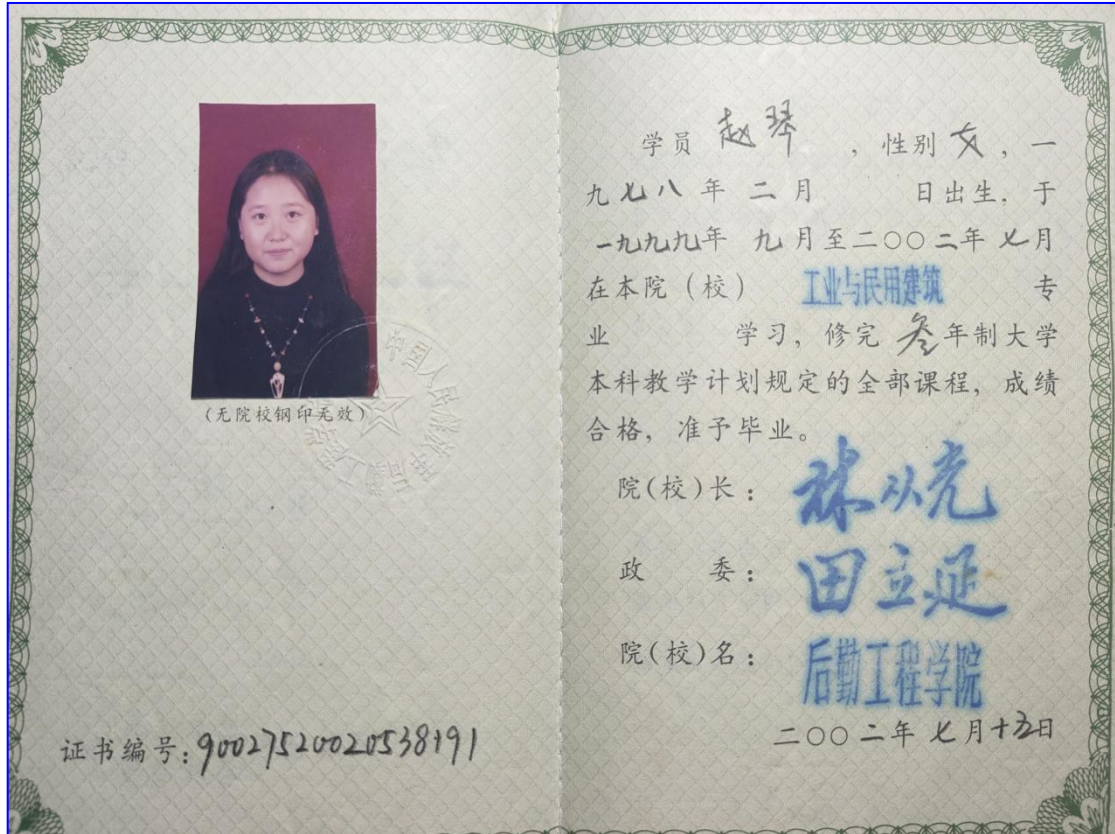 (无院校钢印无效)
证书编号:90027520020538191
学员 赵琴 ,性别 女,一
九七八年 二月 日出生,于
一九九九年 九月至二〇〇二年 七月
在本院(校) 工业与民用建筑 专
业 学习,修完 叁年制大学
本科教学计划规定的全部课程,成绩
合格,准予毕业。
院(校)长: 林从光
政 委: 田立延
院(校)名: 后勤工程学院
二〇〇二年 七月十五日